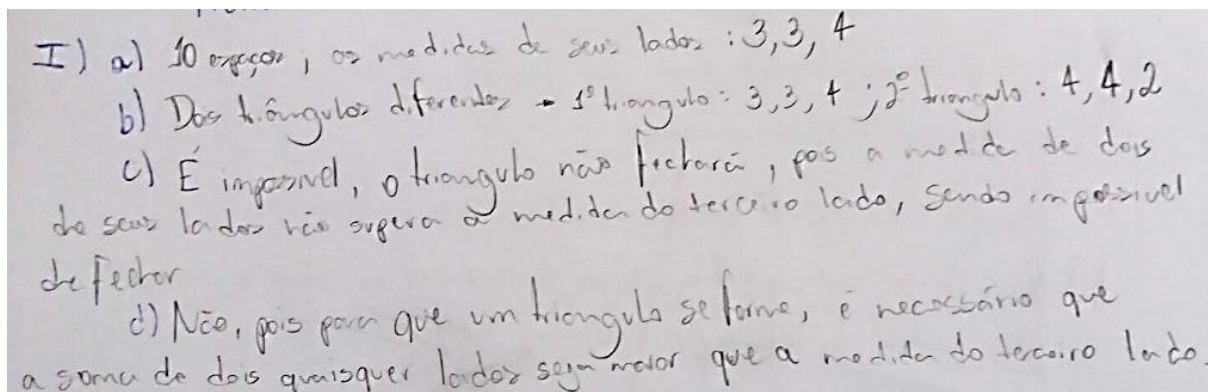 I) a) 10 espaços, as medidas de seus lados : 3, 3, 4
b) Dois triângulos diferentes - 1º triangulo : 3, 3, 4 ; 2º triangulo : 4, 4, 2
c) É impossível, o triangulo não fechará, pois a medida de dois
de seus lados não supera a medida do terceiro lado, sendo impossivel
de fechar
d) Não, pois para que um triangulo se forme, é necessário que
a soma de dois quaisquer lados seja maior que a medida do terceiro lado.